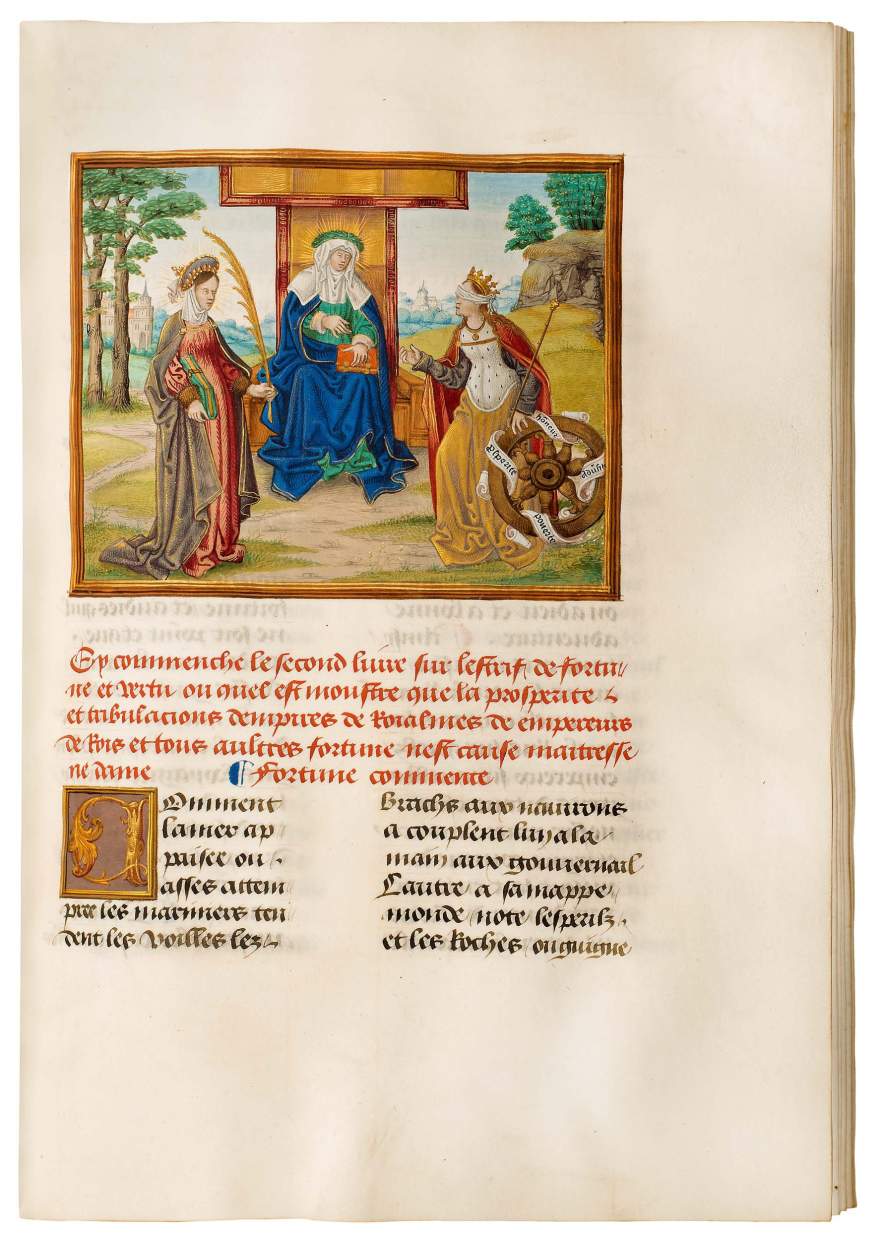 honeur
prosperite
povrete
Cy commenche le second livre sur lestrif de fortu//
ne et vertu ou quel est monstre que la prosperite
et tribulacions dempires de Roialmes de empereurs
de Rois et tous aultres fortune nest cause maitresse
ne dame ¶ Fortune commence
Omment
la mer ap
paisee ou
asses attem
pree les mariniers ten
dent les voilles lez
Brachs aux navirons
a couplent lun a la
main aux gouvernail
Lautre a sa mappe
monde note les perilz
et les Roches ou guigue